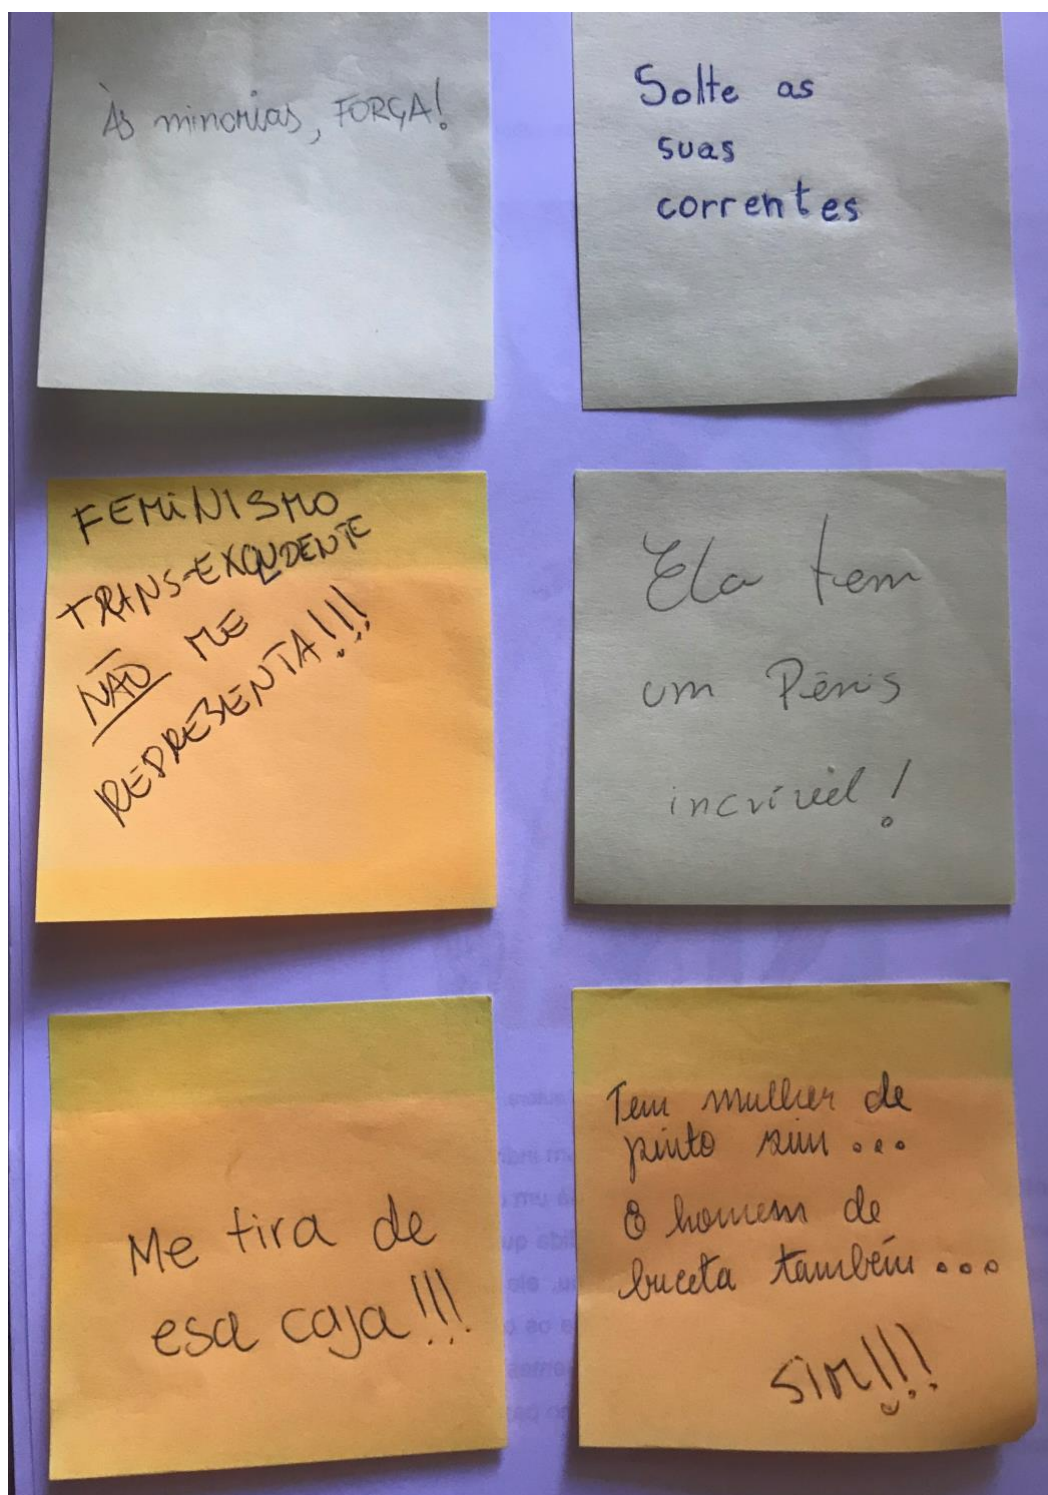 Às minorias, FORÇA!
Solte as
suas
correntes
FEMINISMO
TRANS-EXCLUDENTE
NÃO ME
REPRESENTA!!!
Ela tem
um Pênis
incrível!
Me tira de
esa caja!!!
Tem mulher de
pinto sim...
E homem de
buceta também...
SIM!!!